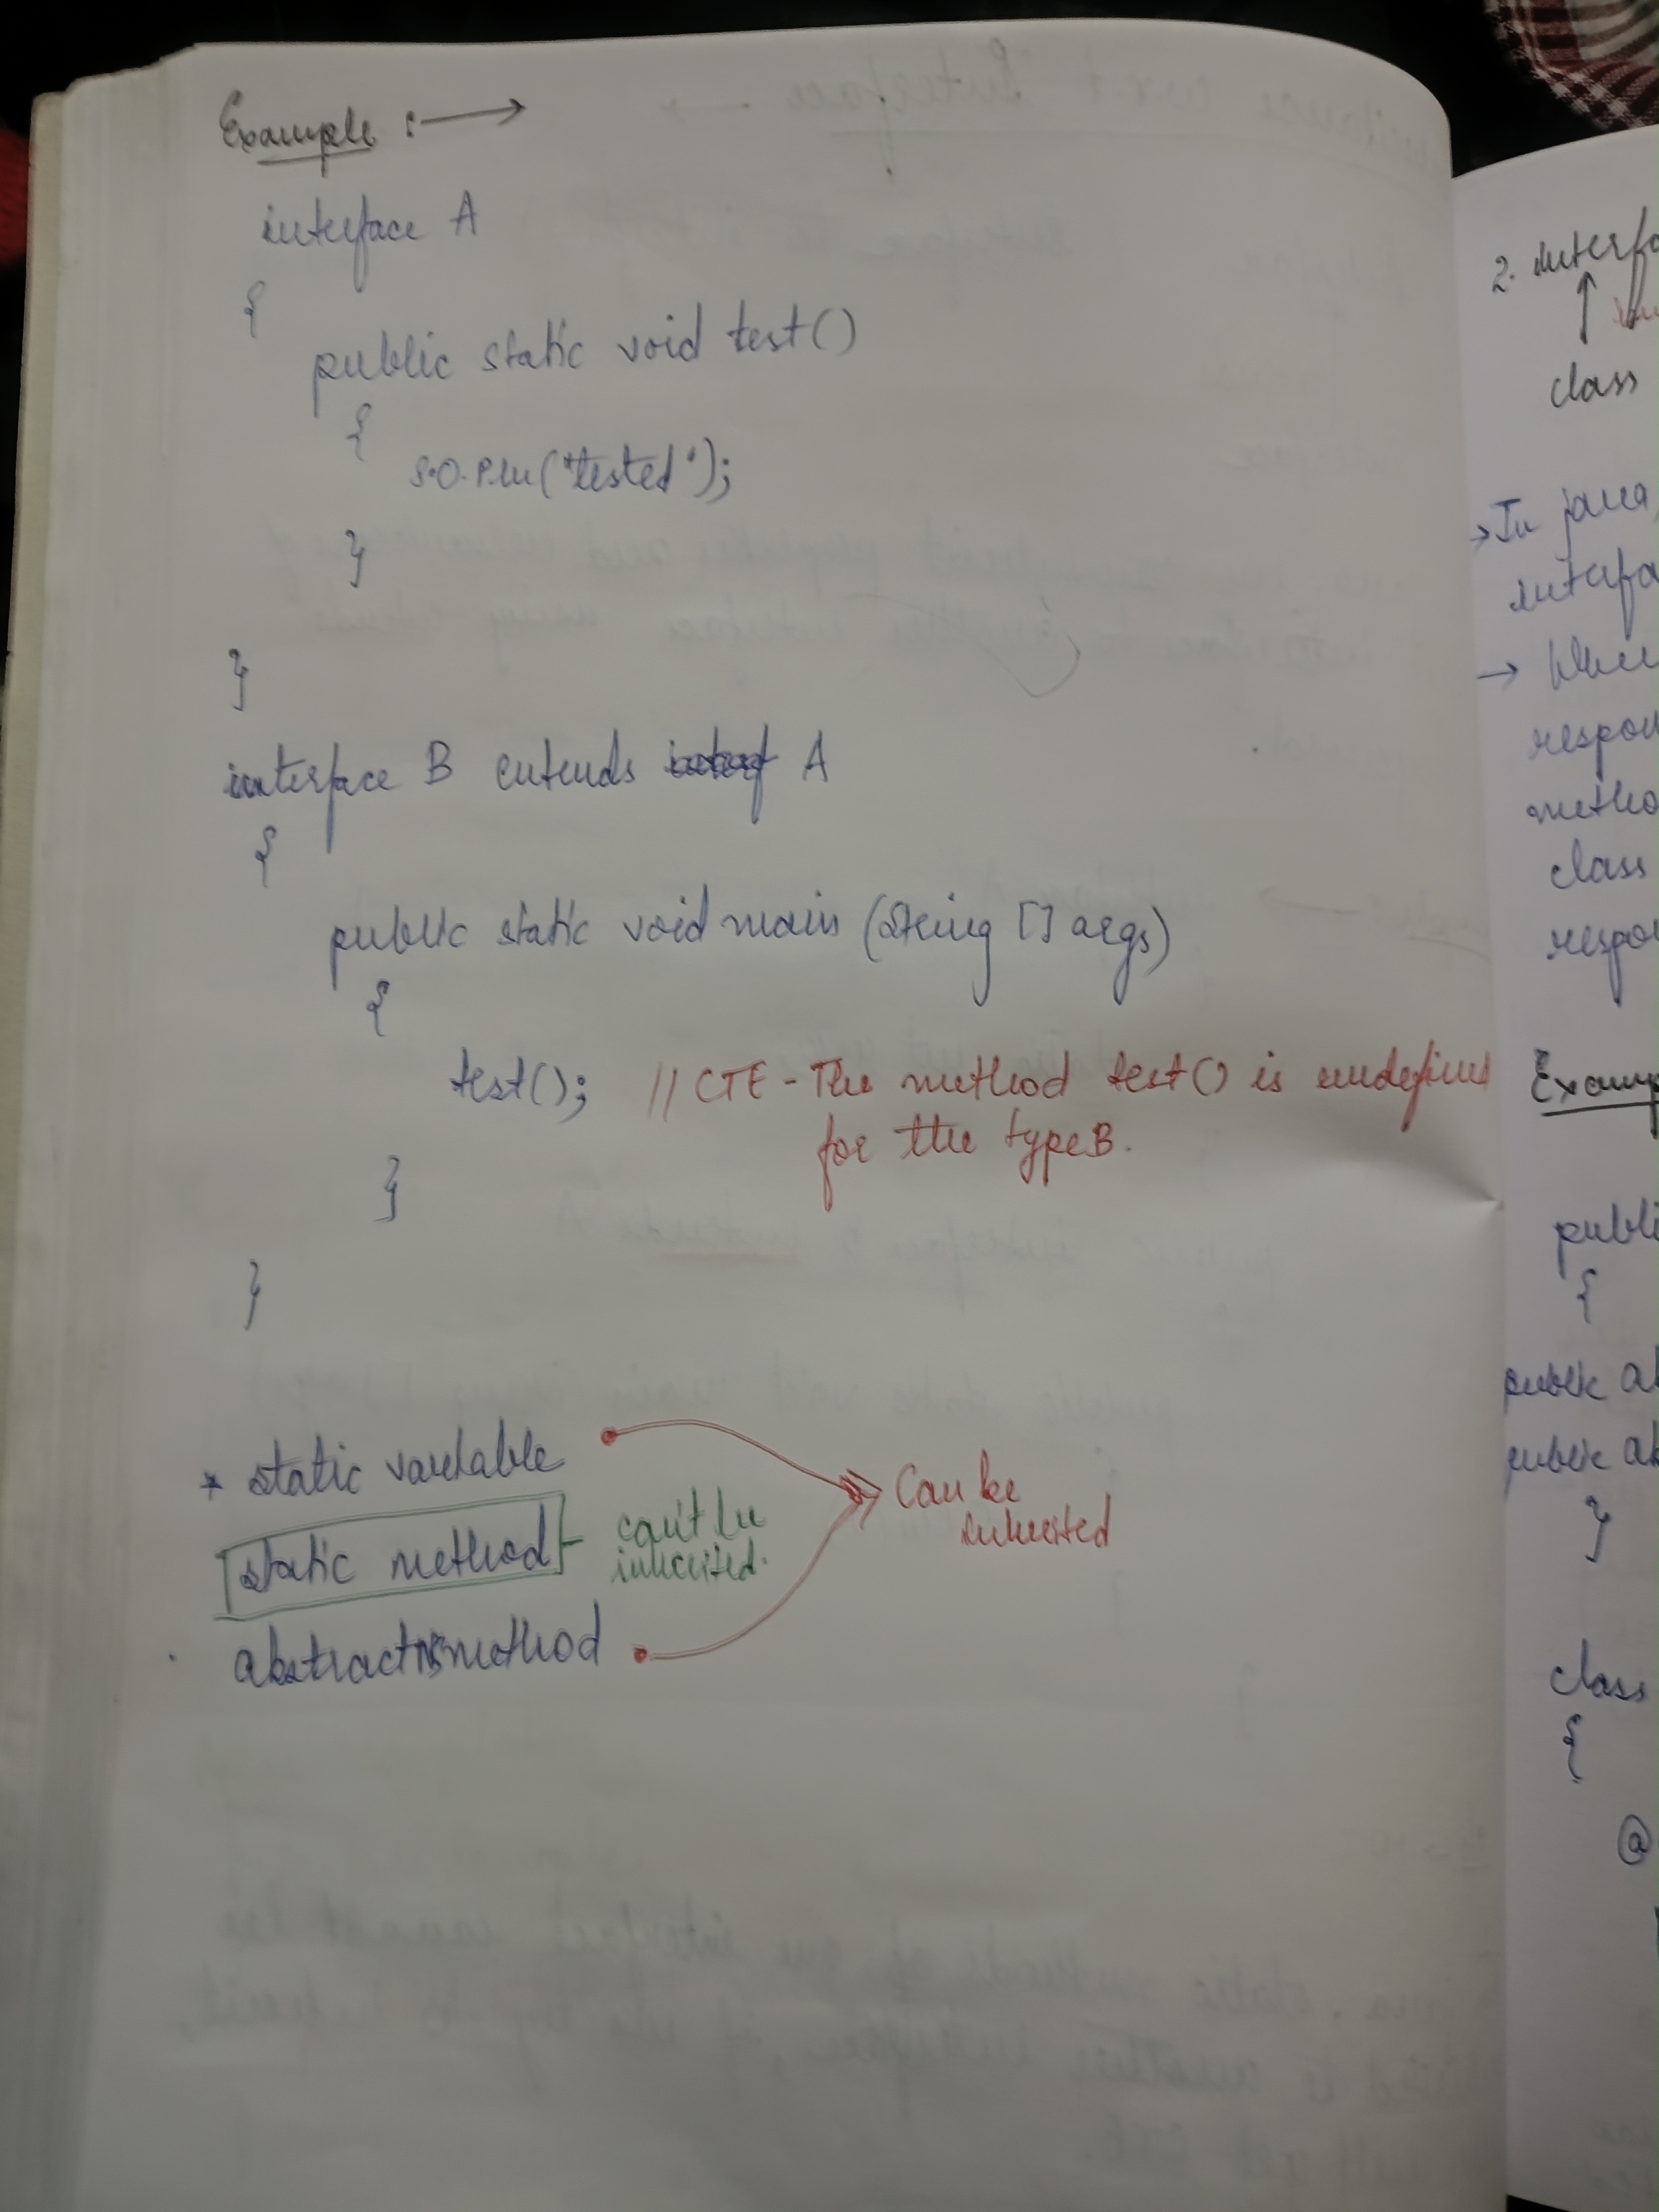 Example :→
interface A
{
public static void test()
{
S.O.Pln("tested");
}
}
interface B extends A
{
public static void main (String [] args)
{
test(); // CTE - The method test() is undefined
for the type B.
}
}
* static variable
static method - can't be
inherited.
abstract method
Can be
inherited
2. interfa
class
→ In java,
interfa
→ When
respon
metho
class
respon
Examp
publi
{
public ab
public ab
}
class
{
@